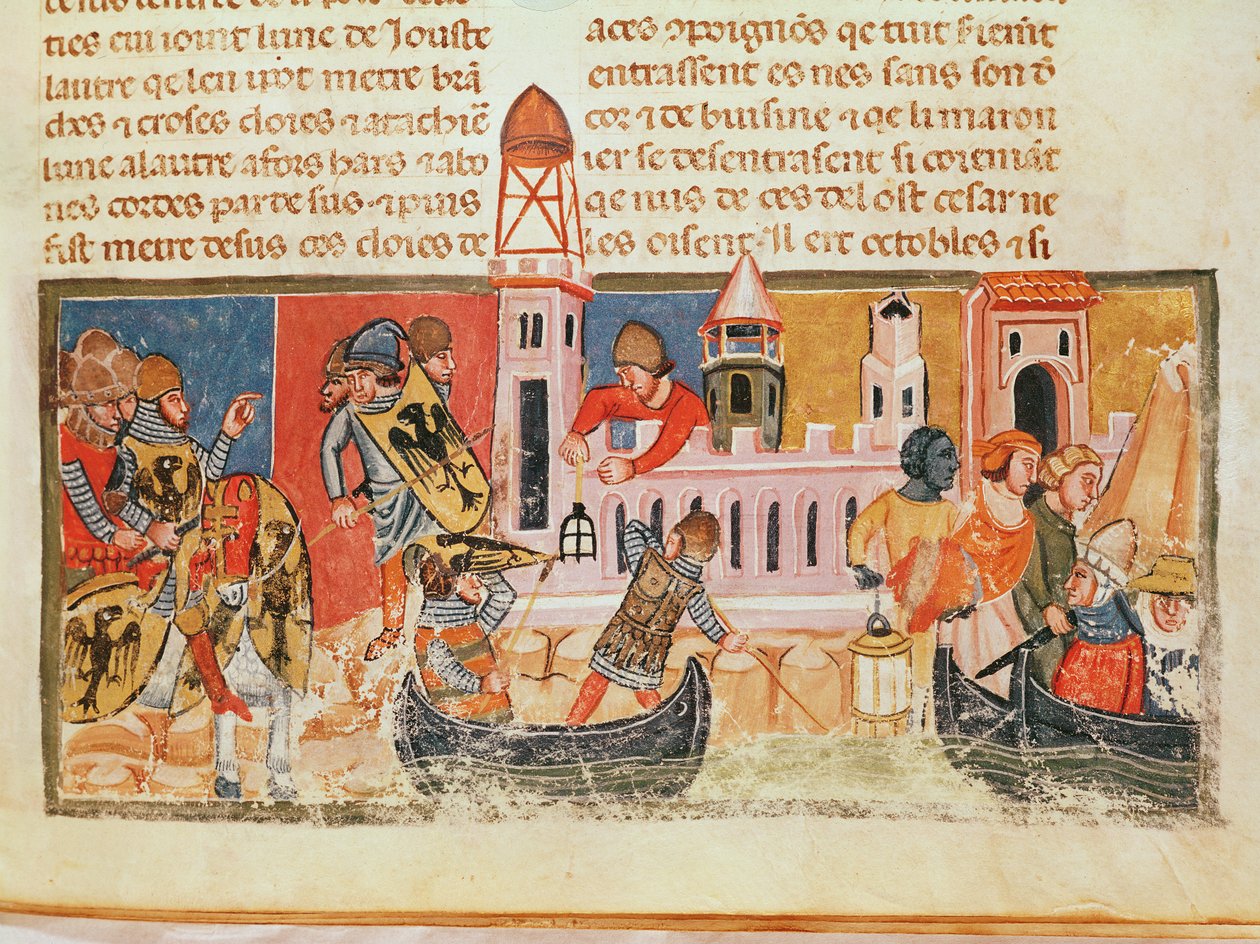 lune de Jouste
lautre qe len ipot metre brā
ches ⁊ croses cloies ⁊ atachiē
lune alautre afors hars ⁊ abo
nes cordes par desus · ⁊ puis
fist metre desus ces cloies de
aces ꝯpoignōs qe tuit
entrassent es nes sans son d̄
cor ⁊ de buisine ⁊ qe li maron
ier se desentrasent si coiemāt
qe nus de ces del ost cesar ne
les oisent · Il ert octobles ⁊ si